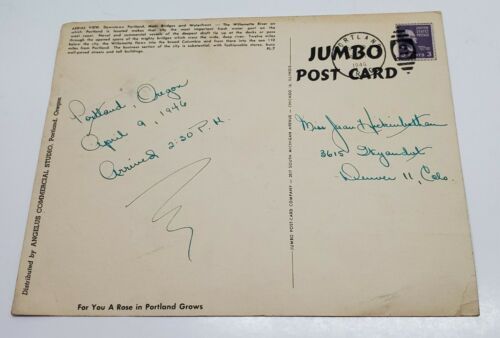 AERIAL VIEW, Downtown Portland, Main Bridges and Waterfront - The Willamette River on
which Portland is located makes that city the most important fresh water port on the
west coast. Naval and commercial vessels of the deepest draft tie up at the docks or pass
through the opened spans of the mighty bridges which cross the wide, deep river. Twelve miles
below the city, the Willamette flows into the broad Columbia and from there into the sea 110
miles from Portland. The business section of the city is substantial, with fashionable stores,
well-paved streets and tall buildings.
PL-7
Portland, Oregon
April 9, 1946
Arrived 2:30 P.M.
For You A Rose in Portland Grows
Distributed by ANGELUS COMMERCIAL STUDIO, Portland, Oregon
JUMBO POST CARD COMPANY - 2517 SOUTH MICHIGAN AVENUE - CHICAGO 16, ILLINOIS
JUMBO
POST CARD
PORTLAND
1946
3
Miss Jean
3615 Wyandot
Denver 11, Colo.